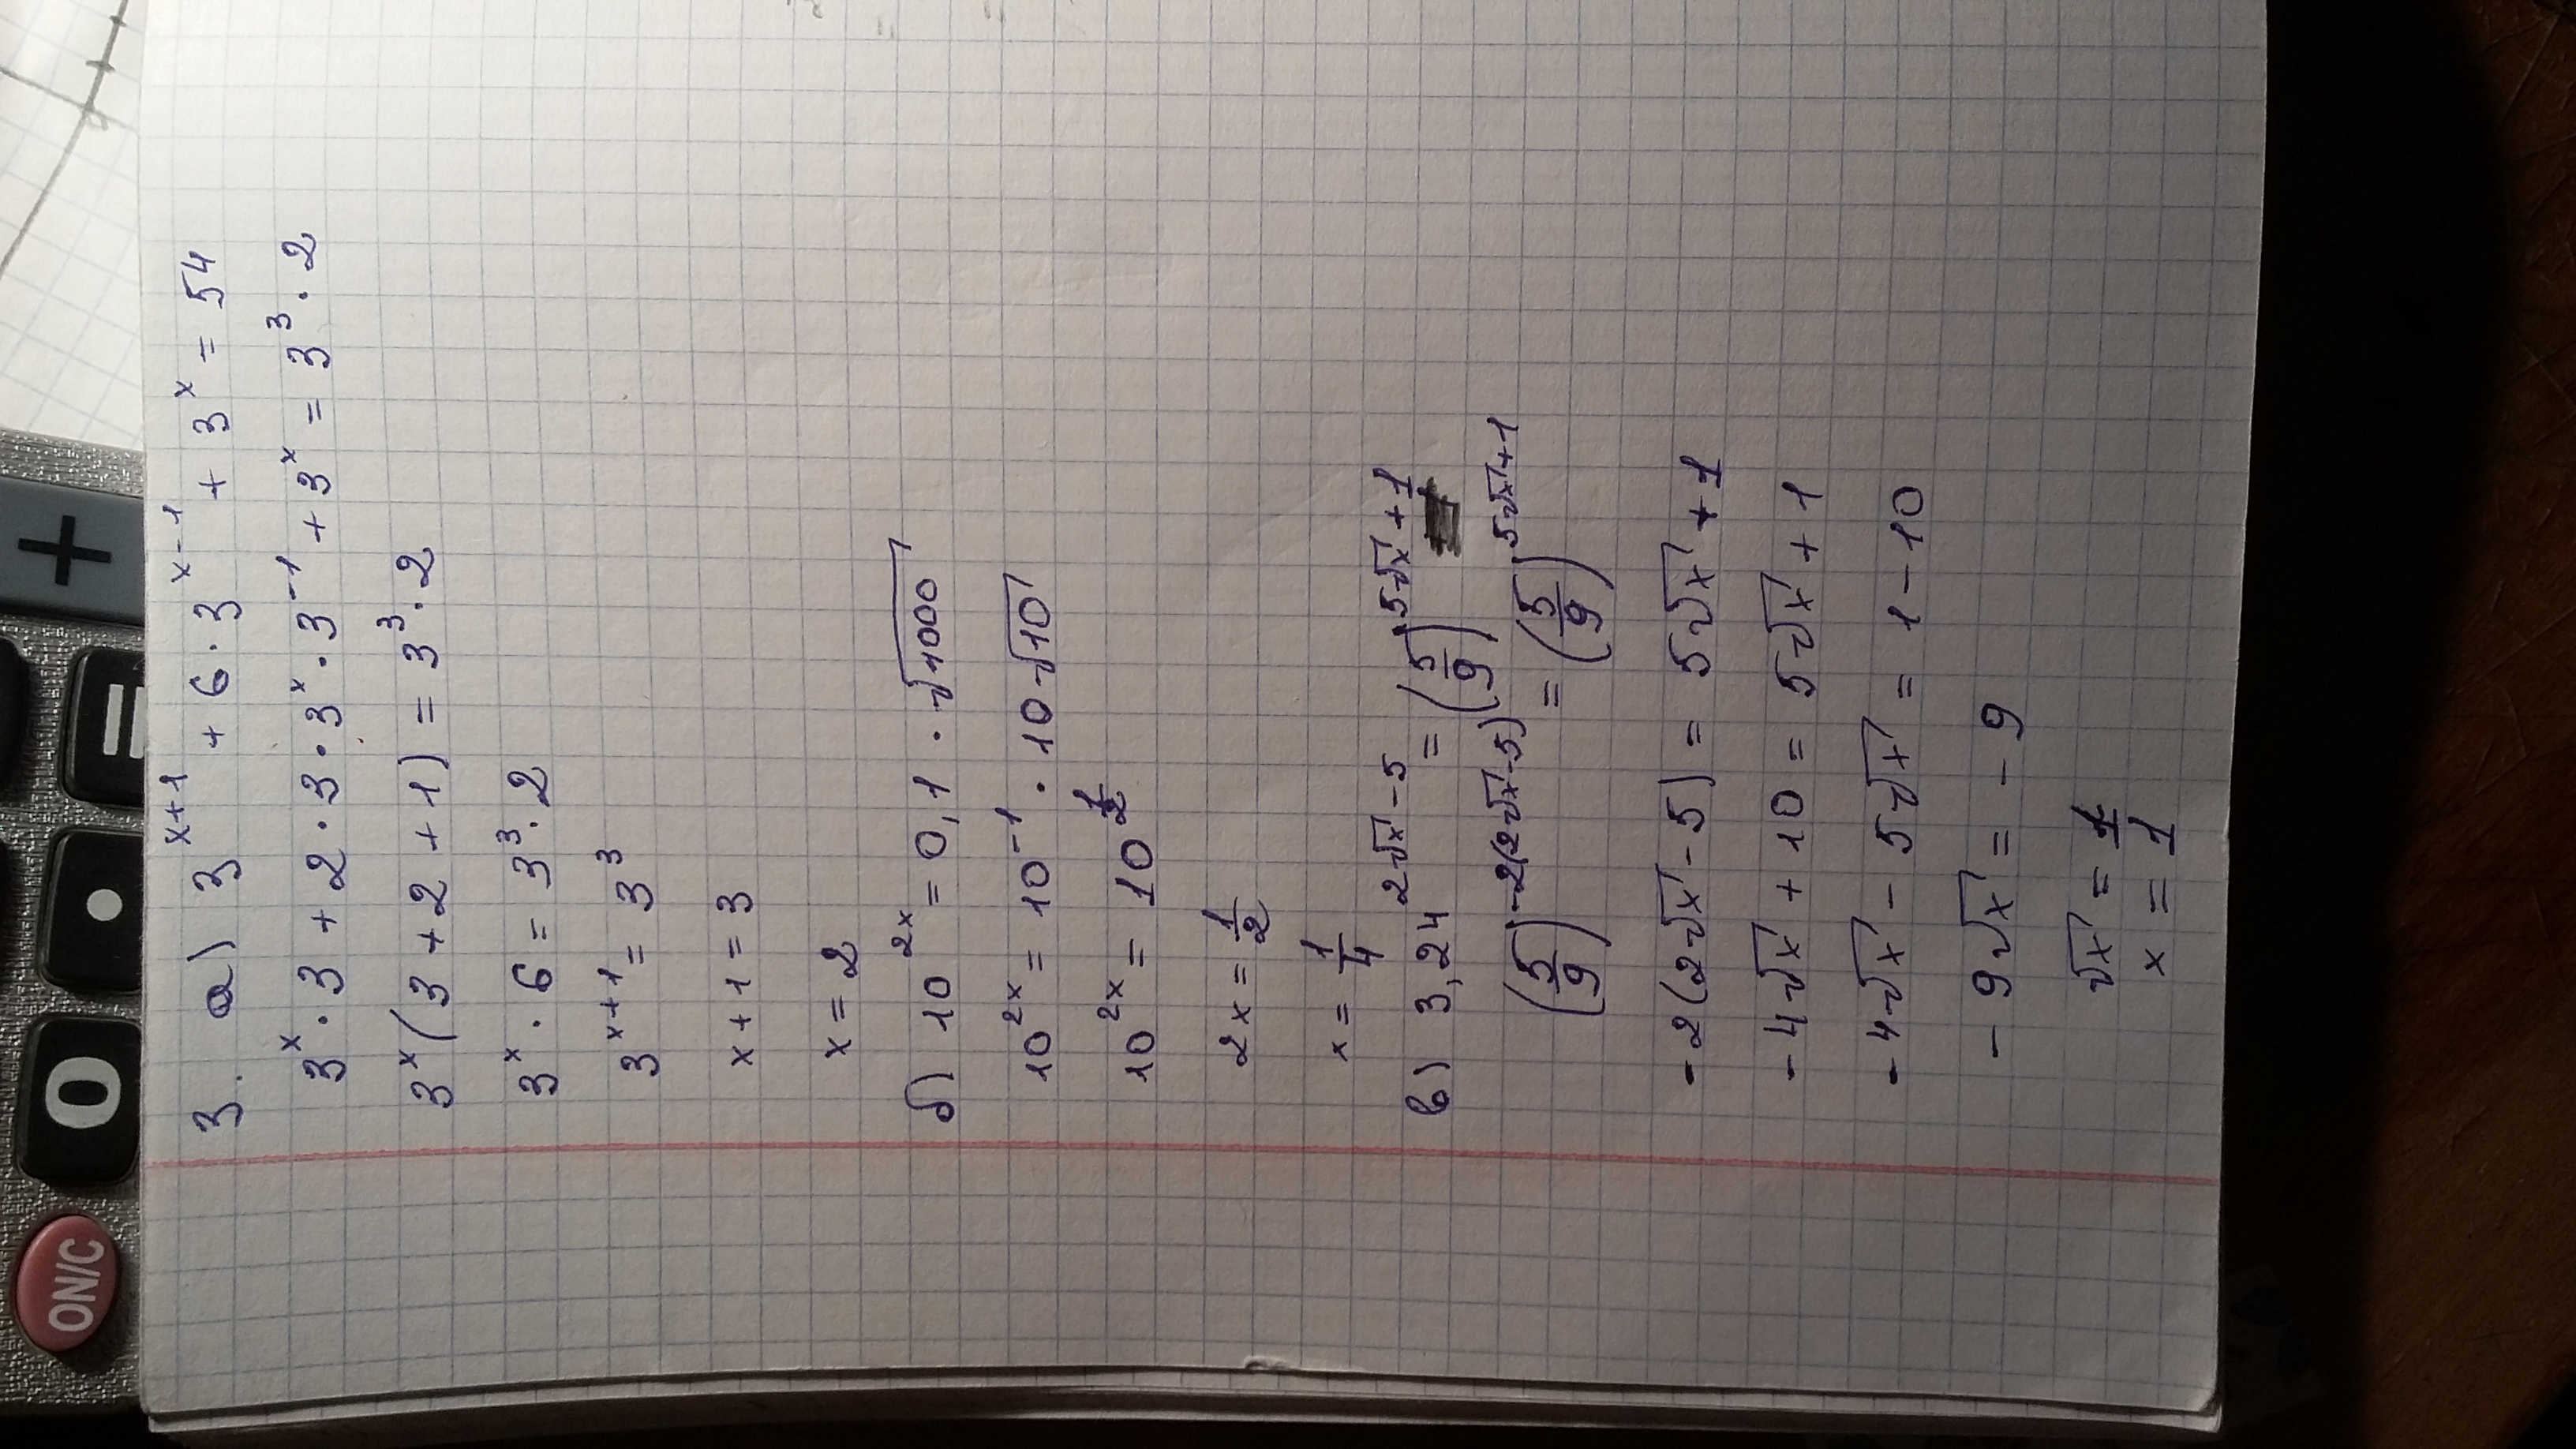 3. a) 3^{x+1} + 6·3^{x-1} + 3^x = 54
3^x·3 + 2·3·3^x·3^{-1} + 3^x = 3^3·2
3^x(3+2+1) = 3^3·2
3^x·6 = 3^3·2
3^{x+1} = 3^3
x+1 = 3
x = 2
б) 10^{2x} = 0,1·√1000
10^{2x} = 10^{-1}·10√10
10^{2x} = 10^{1/2}
2x = 1/2
x = 1/4
в) 3,24^{2√x-5} = (5/9)^{5√x+1}
(5/9)^{-2(2√x-5)} = (5/9)^{5√x+1}
-2(2√x-5) = 5√x+1
-4√x+10 = 5√x+1
-4√x-5√x = 1-10
-9√x = -9
√x = 1
x = 1
ON/C
0
·
=
+